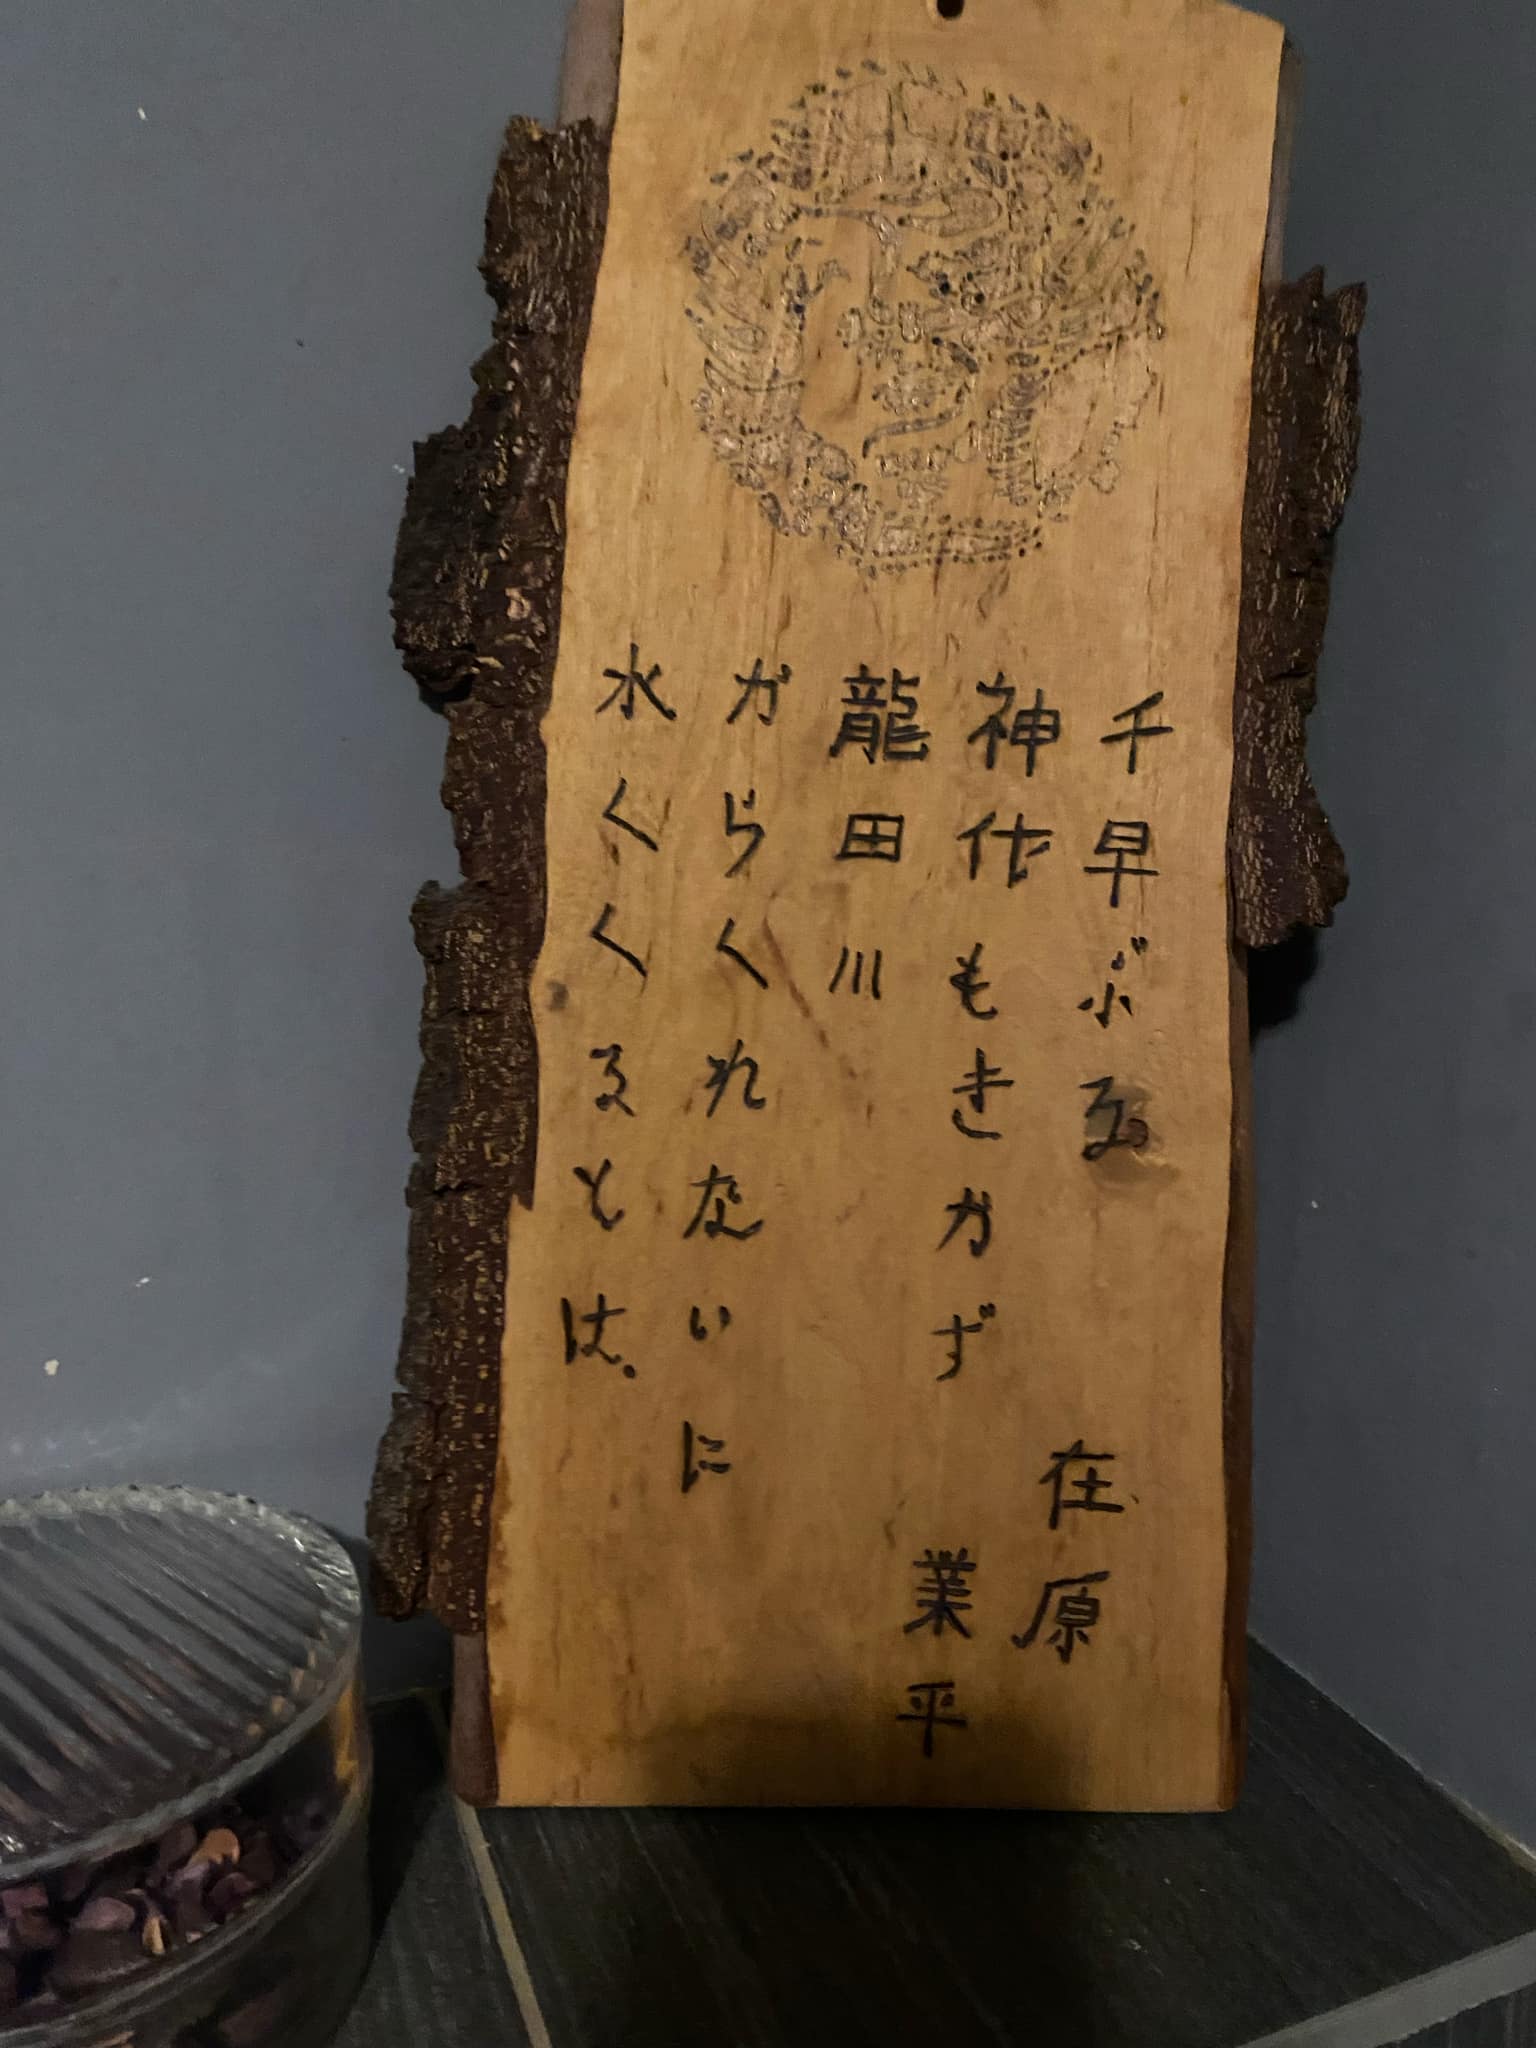 千早ぶる
神代もきかず
龍田川
からくれないに
水くくるとは。
在原
業平